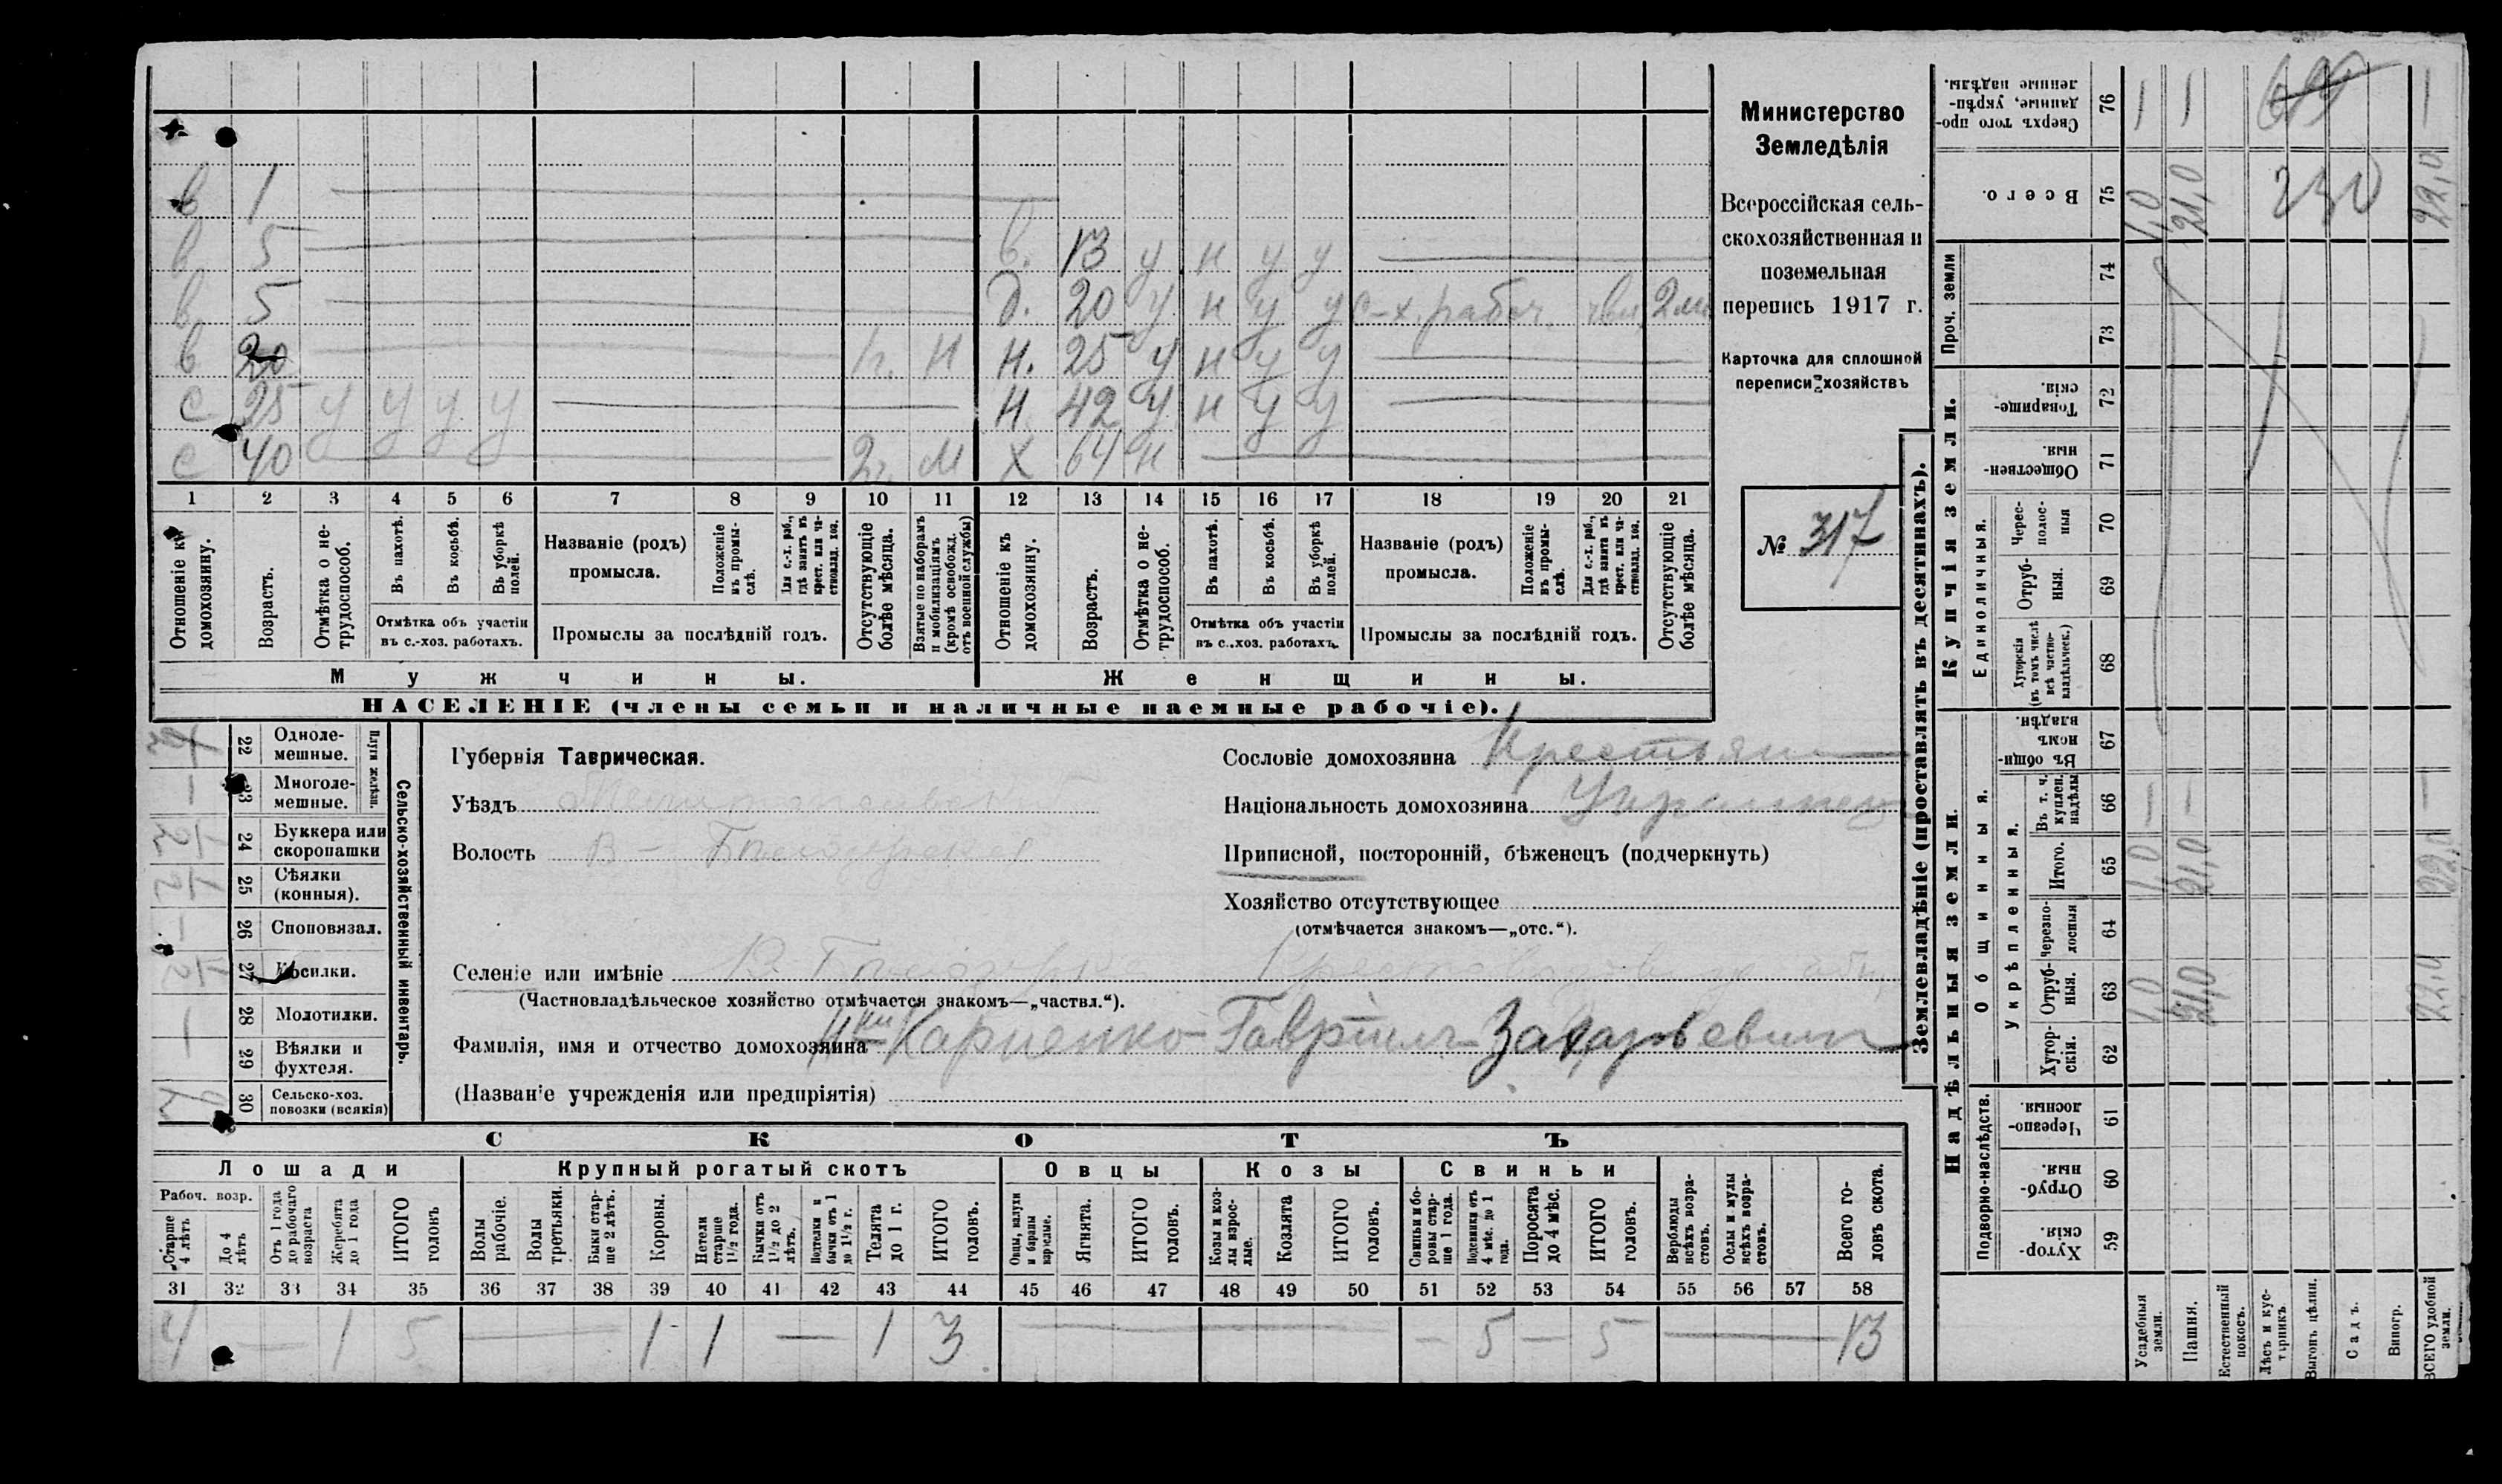 в 1
в 5 в. 13 у н у у
в 5 д. 20 у н у у с-х. рабоч. 2 м
в 20 Н. 25 у н у у
с 25 у у у у Н. 42 у н у у
с 40 2 г. М Х 64 н
1 2 3 4 5 6 7 8 9 10 11 12 13 14 15 16 17 18 19 20 21
Отношеніе къ домохозяину.
Возрастъ.
Отмѣтка о не-
трудоспособ.
Въ пахотѣ.
Въ косьбѣ.
Въ уборкѣ
полей.
Отмѣтка объ участіи
въ с.-хоз. работахъ.
Названіе (родъ)
промысла.
Положеніе
въ промы-
слѣ.
Для с.-х. раб.,
гдѣ занятъ въ
крест. или ча-
стновлад. хоз.
Промыслы за послѣдній годъ.
Отсутствующіе
болѣе мѣсяца.
Взятые по наборамъ
и мобилизаціямъ
(кромѣ освобожд.
отъ военной службы)
Отношеніе къ
домохозяину.
Возрастъ.
Отмѣтка о не-
трудоспособ.
Въ пахотѣ.
Въ косьбѣ.
Въ уборкѣ
полей.
Отмѣтка объ участіи
въ с.-хоз. работахъ.
Названіе (родъ)
промысла.
Положеніе
въ промы-
слѣ.
Для с.-х. раб.,
гдѣ занята въ
крест. или ча-
стновлад. хоз.
Промыслы за послѣдній годъ.
Отсутствующіе
болѣе мѣсяца.
Мужчины. Женщины.
НАСЕЛЕНІЕ (члены семьи и наличные наемные рабочіе).
Министерство
Земледѣлія
Всероссійская сель-
скохозяйственная и
поземельная
перепись 1917 г.
Карточка для сплошной
переписи хозяйствъ
№ 317
22 Одноле-
мешные.
23 Многоле-
мешные.
Плуги желѣзн.
24 Буккера или
скоропашки
25 Сѣялки
(конныя).
26 Споповязал.
27 Косилки.
28 Молотилки.
29 Вѣялки и
фухтеля.
30 Сельско-хоз.
повозки (всякія)
Сельско-хозяйственный инвентарь.
Губернія Таврическая.
Уѣздъ
Волость
Селеніе или имѣніе
(Частновладѣльческое хозяйство отмѣчается знакомъ—„частвл.“).
Фамилія, имя и отчество домохозяина Карпенко Гавріилъ Захарьевичъ
(Названіе учрежденія или предпріятія)
Сословіе домохозяина Крестьян
Національность домохозяина Украинец
Приписной, посторонній, бѣженецъ (подчеркнуть)
Хозяйство отсутствующее
(отмѣчается знакомъ—„отс.“).
СКОТЪ
Лошади Крупный рогатый скотъ Овцы Козы Свиньи
Рабоч. возр.
Старше
4 лѣтъ
До 4
лѣтъ
Отъ 1 года
до рабочаго
возраста
Жеребята
до 1 года
ИТОГО
головъ
Волы
рабочіе.
Волы
третьяки.
Быки стар-
ше 2 лѣтъ.
Коровы.
Нетели
старше
1½ года.
Бычки отъ
1½ до 2
лѣтъ.
Подтелки и
бычки отъ 1
до 1½ г.
Телята
до 1 г.
ИТОГО
головъ.
Овцы, валухи
и бараны
взрослые.
Ягнята.
ИТОГО
головъ.
Козы и коз-
лы взрос-
лые.
Козлята
ИТОГО
головъ.
Свиньи и бо-
ровы стар-
ше 1 года.
Подсвинки отъ
4 мѣс. до 1
года.
Поросята
до 4 мѣс.
ИТОГО
головъ.
Верблюды
всѣхъ возра-
стовъ.
Ослы и мулы
всѣхъ возра-
стовъ.
Всего го-
ловъ скота.
31 32 33 34 35 36 37 38 39 40 41 42 43 44 45 46 47 48 49 50 51 52 53 54 55 56 57 58
4 — 1 5 — 1 1 — 1 3 — — 5 — 5 — 13
Землевладѣніе (проставлять въ десятинахъ).
Надѣльныя земли.
Купчія земли.
Проч. земли
Подворно-наслѣдств.
Общинныя.
Укрѣпленныя.
Единоличныя.
Сверхъ того про-
данные, укрѣп-
ленные надѣлы.
76
Всего.
75
74
73
Товарище-
скія.
72
Обществен-
ныя.
71
Черес-
полос-
ныя
70
Отруб-
ныя.
69
Хуторскія
(въ томъ числѣ
всѣ частно-
владѣльческ.)
68
Въ общин-
номъ
владѣн.
67
Въ т. ч.
куплен.
надѣлы
66
Итого.
65
Черезпо-
лосныя
64
Отруб-
ныя.
63
Хутор-
скія.
62
Черезпо-
лосныя.
61
Отруб-
ныя.
60
Хутор-
скія.
59
Усадебныя
земли.
Пашня.
Естественный
покосъ.
Лѣсъ и кус-
тарникъ
Выгонъ цѣлин.
Садъ.
Виногр.
ВСЕГО удобной
земли.
1,0 21,0 22,0
1,0 21,0 22,0
1,0 21,0 22,0